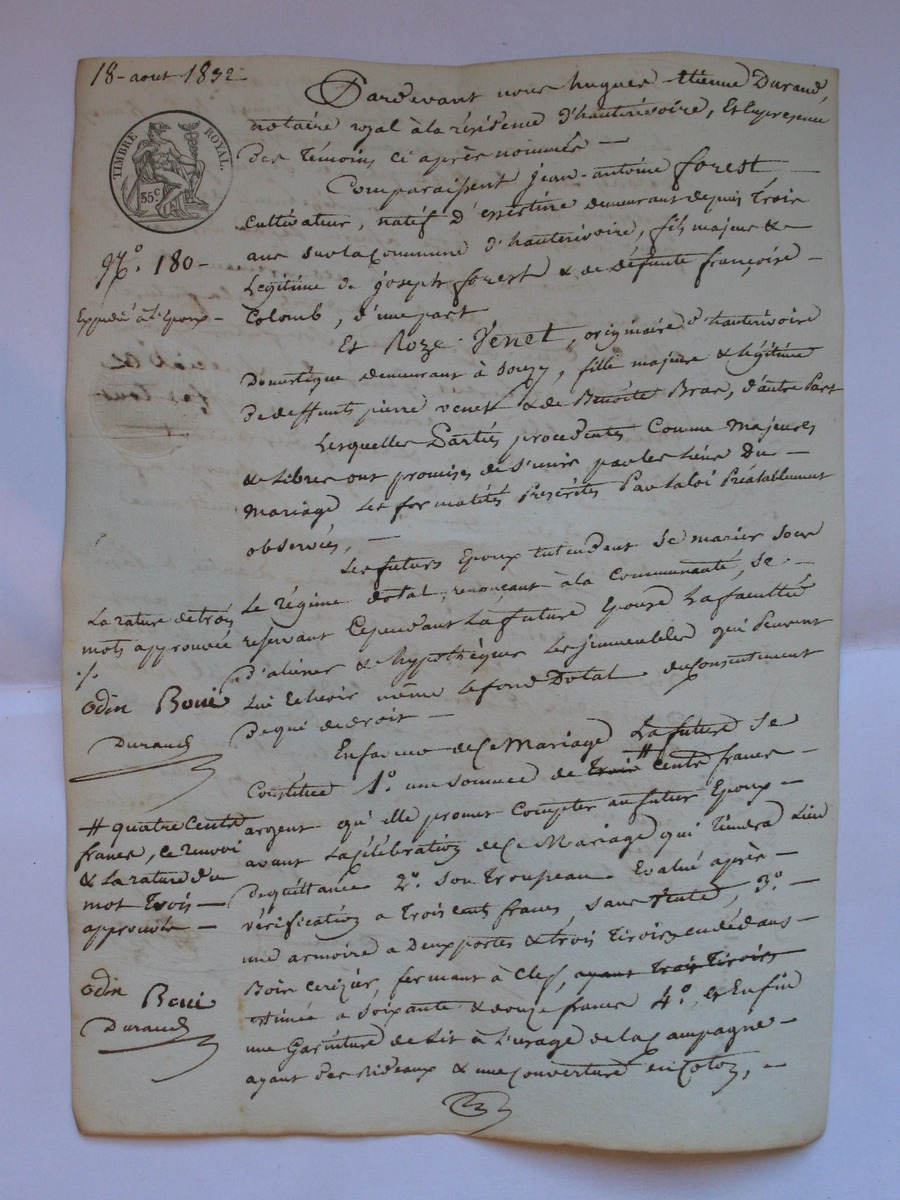 18 - aout 1832
TIMBRE ROYAL.
35 c
N.° 180 -
Expedié à l'Epoux -
Pardevant nous hugues - étienne Durand,
notaire royal à la résidence d'hauterivoire, Et En presence
Des Témoins ci après nommés —
Comparaissent jean-antoine forest
cultivateur, natif d'essertine demeurant depuis Trois
ans sur la commune d'hauterivoire, fils majeur &
Légitime de joseph forest & de défunte françoise -
Colomb, d'une part
Et Roze Venet, originaire d'hauterivoire
Domestique demeurant à Souzy, fille majeure & légitime
De deffunts pierre venet & de Benoîte Bras, d'autre Part
Lesquelles Parties procedentes Comme Majeures
& Libres ont promises de S'unir par les liens Du -
Mariage Les formalités Prescrites Par La loi Préalablement
observées, —
Les futurs Epoux Entendent Se marier sous
Le régime dotal, renonçant à la Communauté, Se -
reservant Cependant La future Epouse La faculté
D'aliener & Hypothéquer Les immeubles qui Peuvent
Lui Echeoir même le fond Dotal du Consentement
De qui de droit —
La rature de trois
mots approuvée
./.
Odin Boui
Durand
En faveur de Ce Mariage La future Se
Constitue 1.° une somme de Trois # Cents francs -
argent qu'elle promet Compter au futur Epoux -
avant La Célébration de Ce Mariage qui Tiendra Lieu
De quittance 2.° Son Troupeau Evalué après -
vérification a Trois cents francs, sans 3.° -
une armoire a Deux portes & trois Tiroirs en dedans -
Bois cerizier, fermant à Clef, ayant Trois Tiroirs
Estimée a Soixante & douze francs 4.° Et Enfin
une Garniture de Lit à L'usage de la Campagne -
ayant des Rideaux & une Couverture en Coton, -
# quatre Cents
francs, ce renvoi
& La rature du
mot Trois -
approuvés -
Odin Boui
Durand